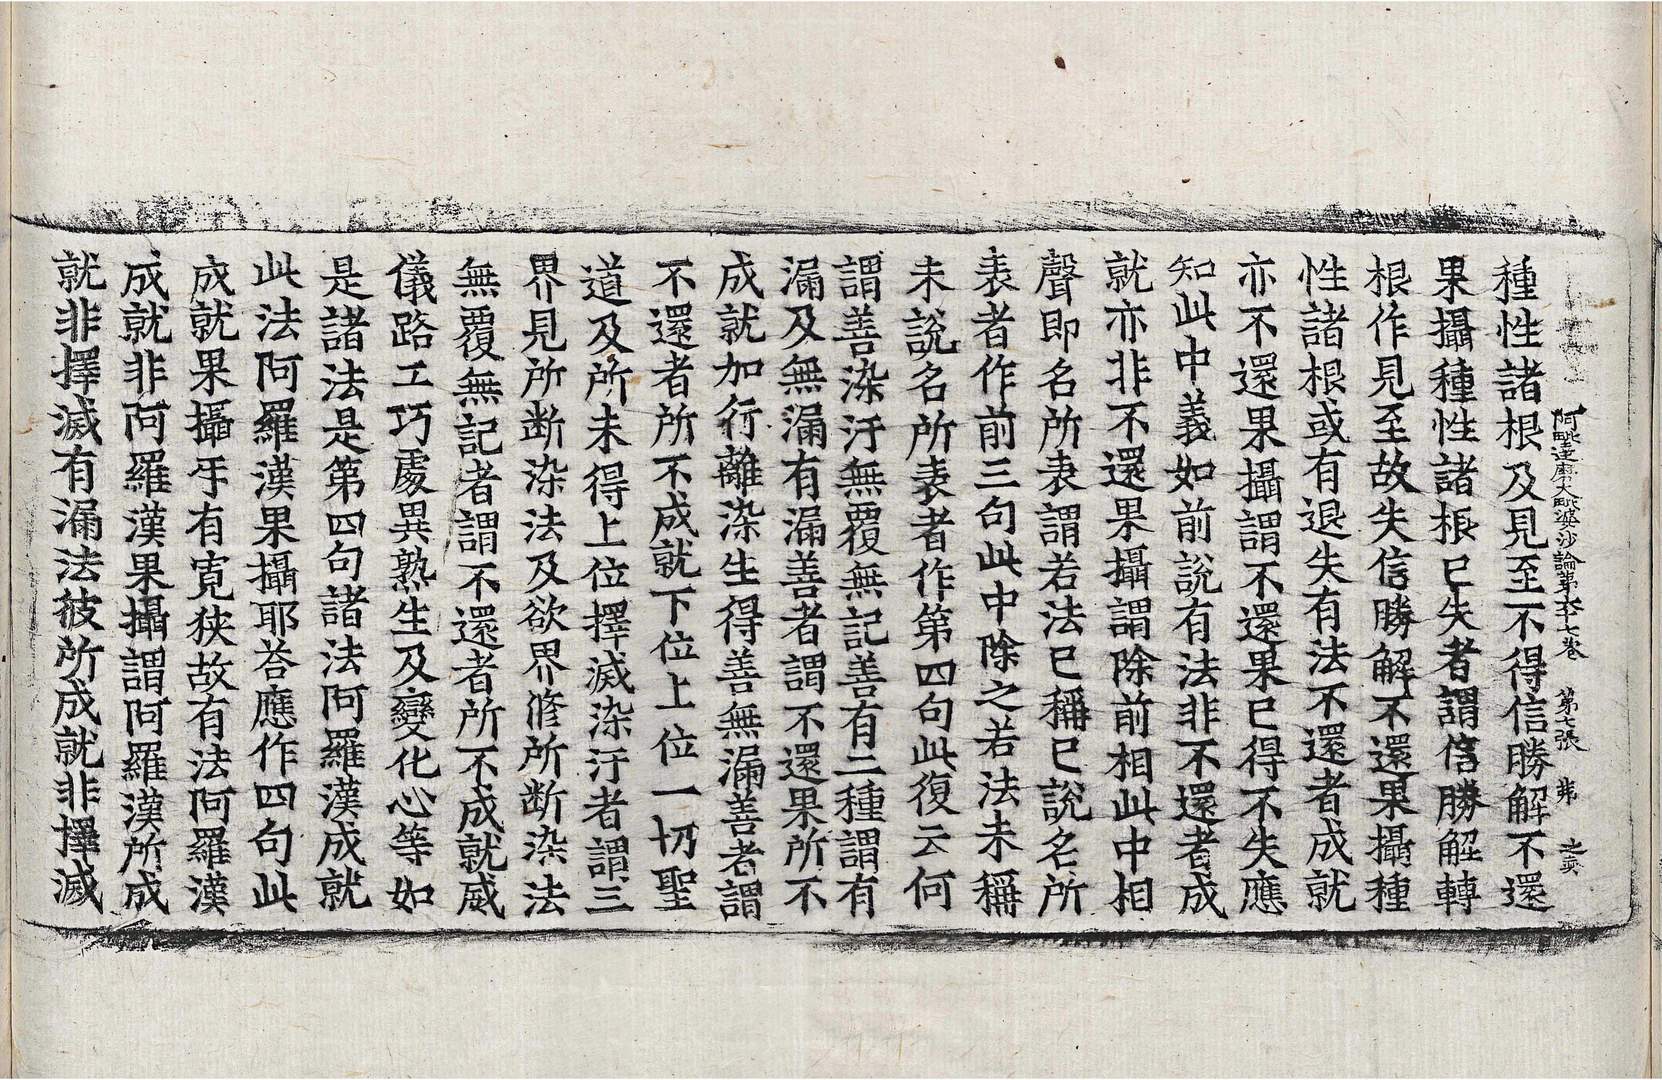 阿毗達磨大毗婆沙論第六十七卷 第七張 弗 之奕
種性諸根及見至不得信勝解不還
果攝種性諸根已失者謂信勝解轉
根作見至故失信勝解不還果攝種
性諸根或有退失有法不還者成就
亦不還果攝謂不還果已得不失應
知此中義如前說有法非不還者成
就亦非不還果攝謂除前相此中相
聲即名所表謂若法已稱已說名所
表者作前三句此中除之若法未稱
未說名所表者作第四句此復云何
謂善染汙無覆無記善有二種謂有
漏及無漏有漏善者謂不還果所不
成就加行離染生得善無漏善者謂
不還者所不成就下位上位一切聖
道及所未得上位擇滅染汙者謂三
界見所斷染法及欲界修所斷染法
無覆無記者謂不還者所不成就威
儀路工巧處異熟生及變化心等如
是諸法是第四句諸法阿羅漢成就
此法阿羅漢果攝耶荅應作四句此
成就果攝互有寬狹故有法阿羅漢
成就非阿羅漢果攝謂阿羅漢所成
就非擇滅有漏法彼所成就非擇滅